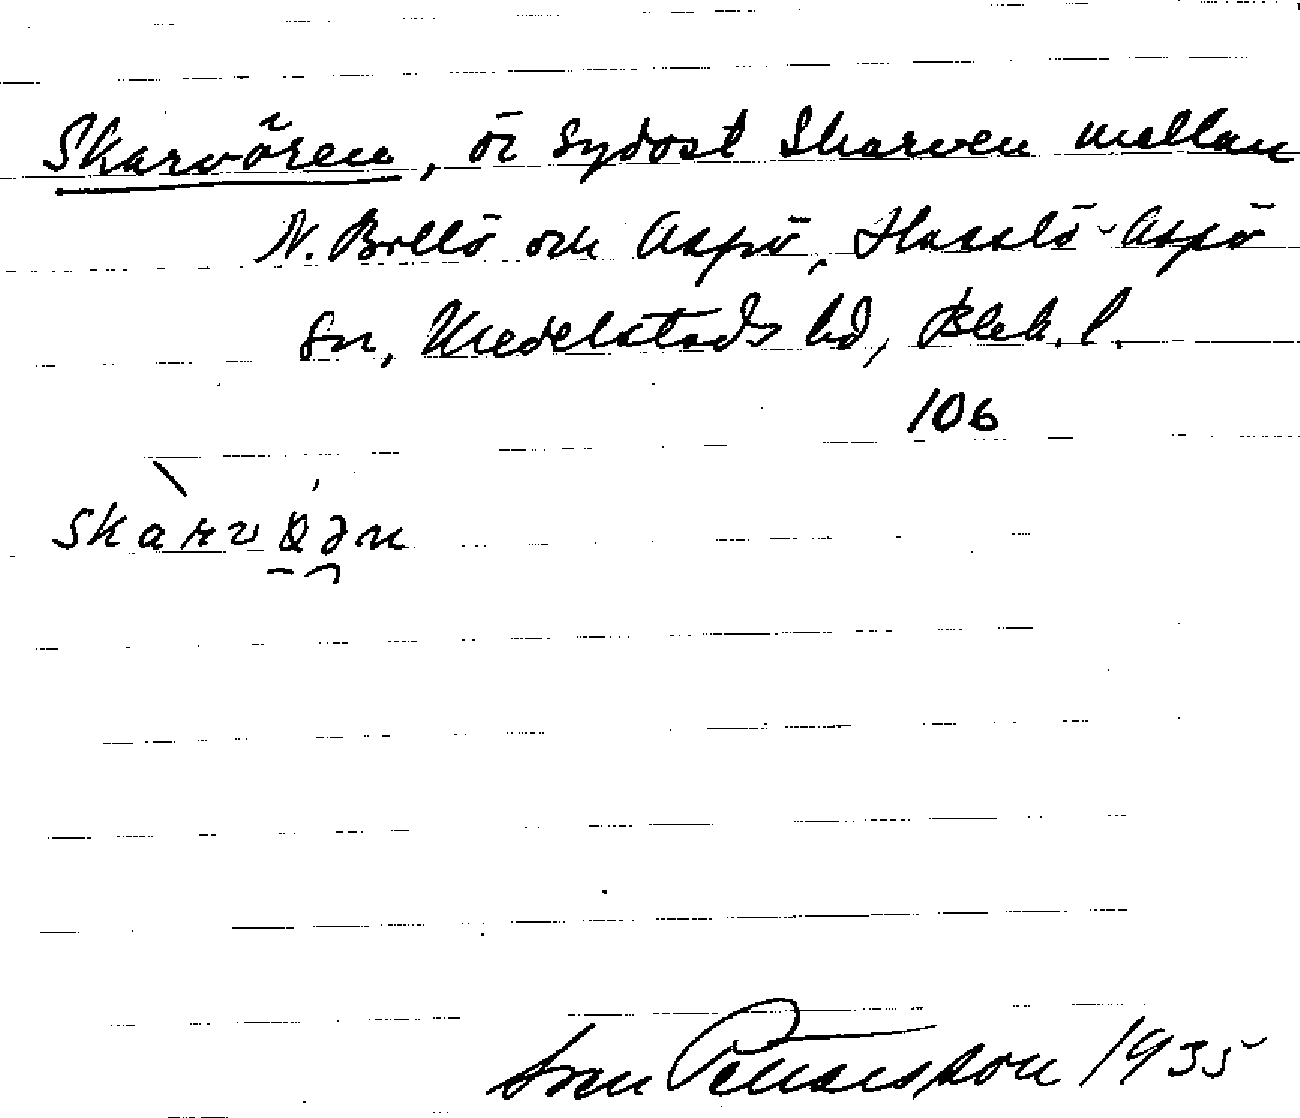 Skarvören, ör sydost Skarven mellan
N. Bollö och Aspö, Hasslö-Aspö
sn, Medelstads hd, Blek. l.
106
Sven Pettersson 1935